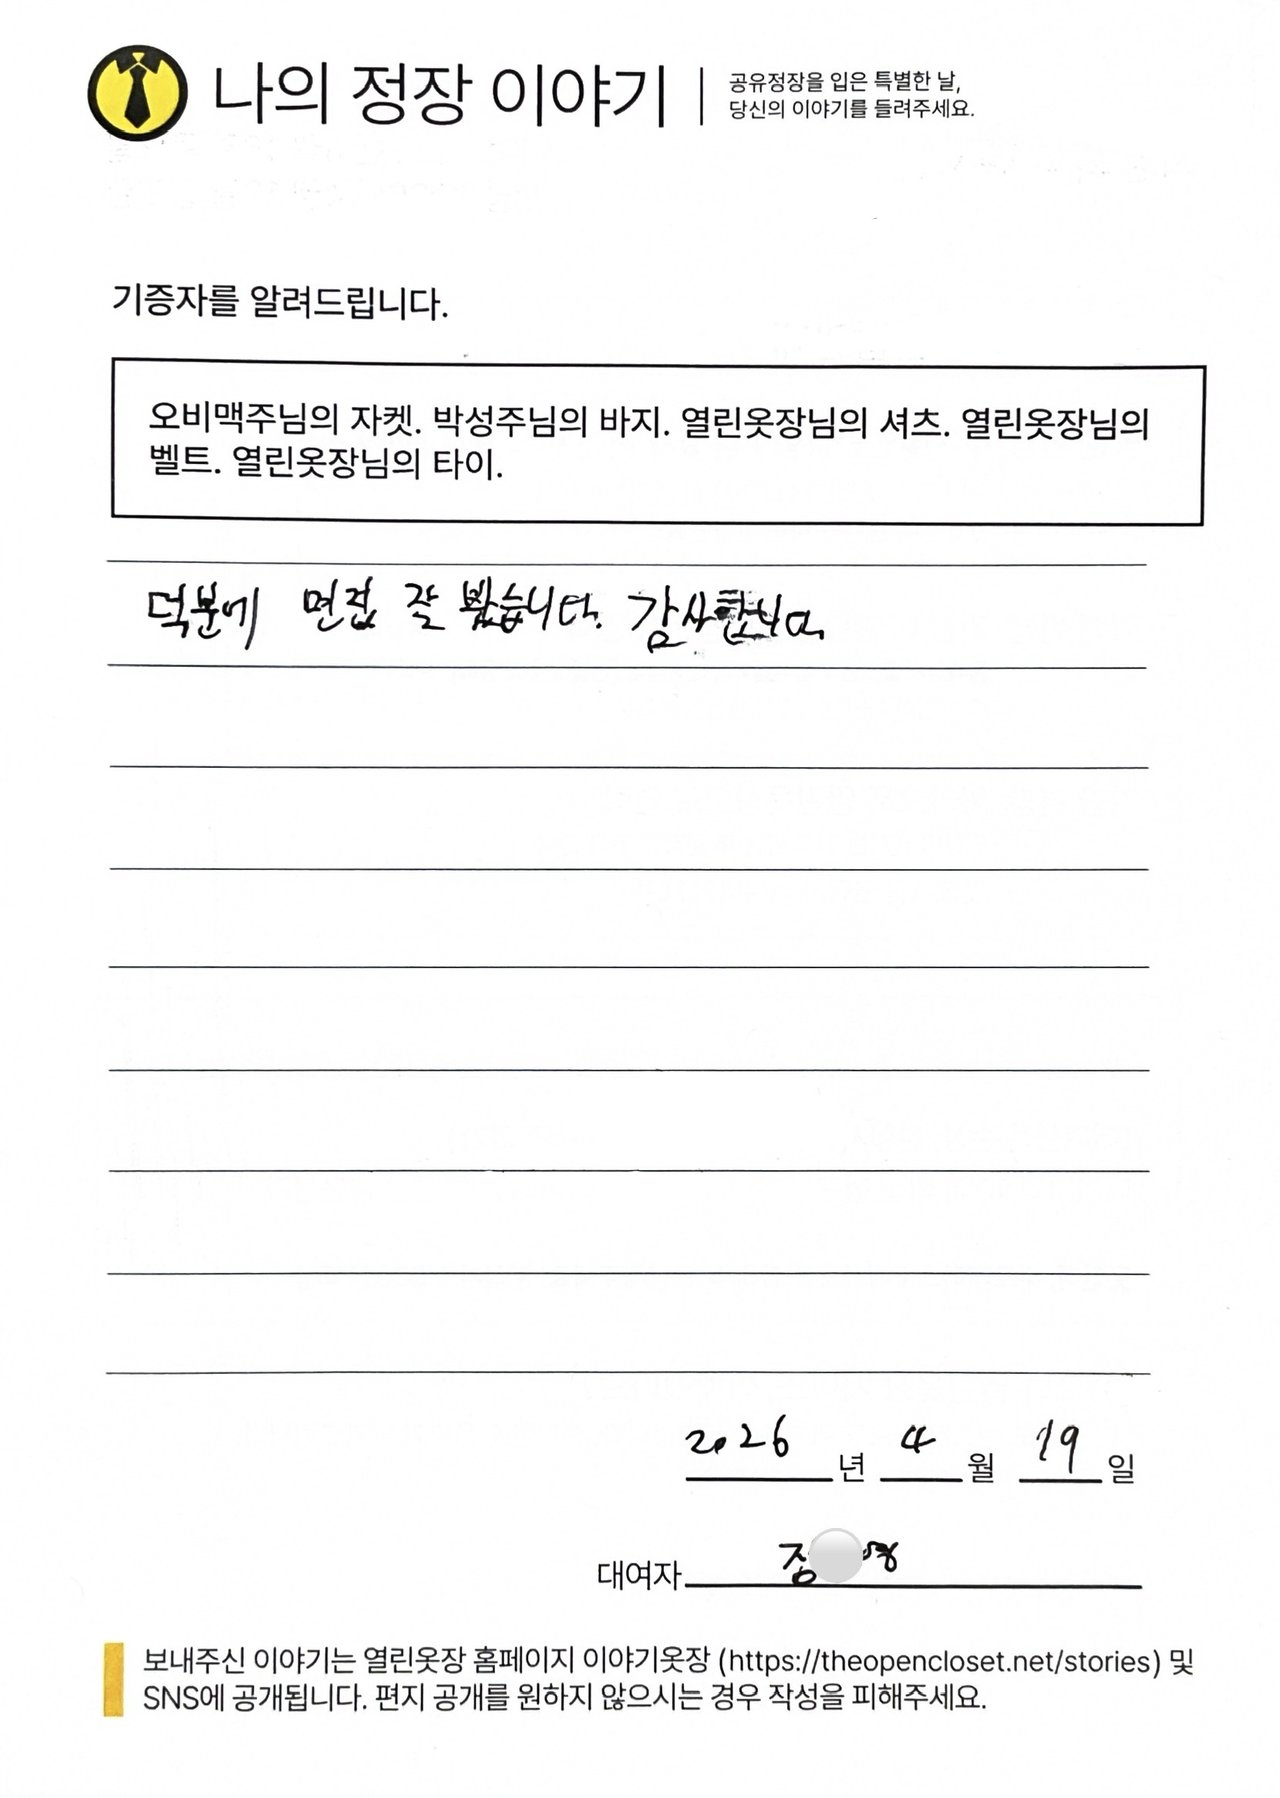 나의 정장 이야기
공유정장을 입은 특별한 날,
당신의 이야기를 들려주세요.
기증자를 알려드립니다.
오비맥주님의 자켓. 박성주님의 바지. 열린옷장님의 셔츠. 열린옷장님의
벨트. 열린옷장님의 타이.
덕분에 면접 잘 봤습니다. 감사합니다.
2026 년 4 월 19 일
대여자
보내주신 이야기는 열린옷장 홈페이지 이야기옷장 (https://theopencloset.net/stories) 및
SNS에 공개됩니다. 편지 공개를 원하지 않으시는 경우 작성을 피해주세요.